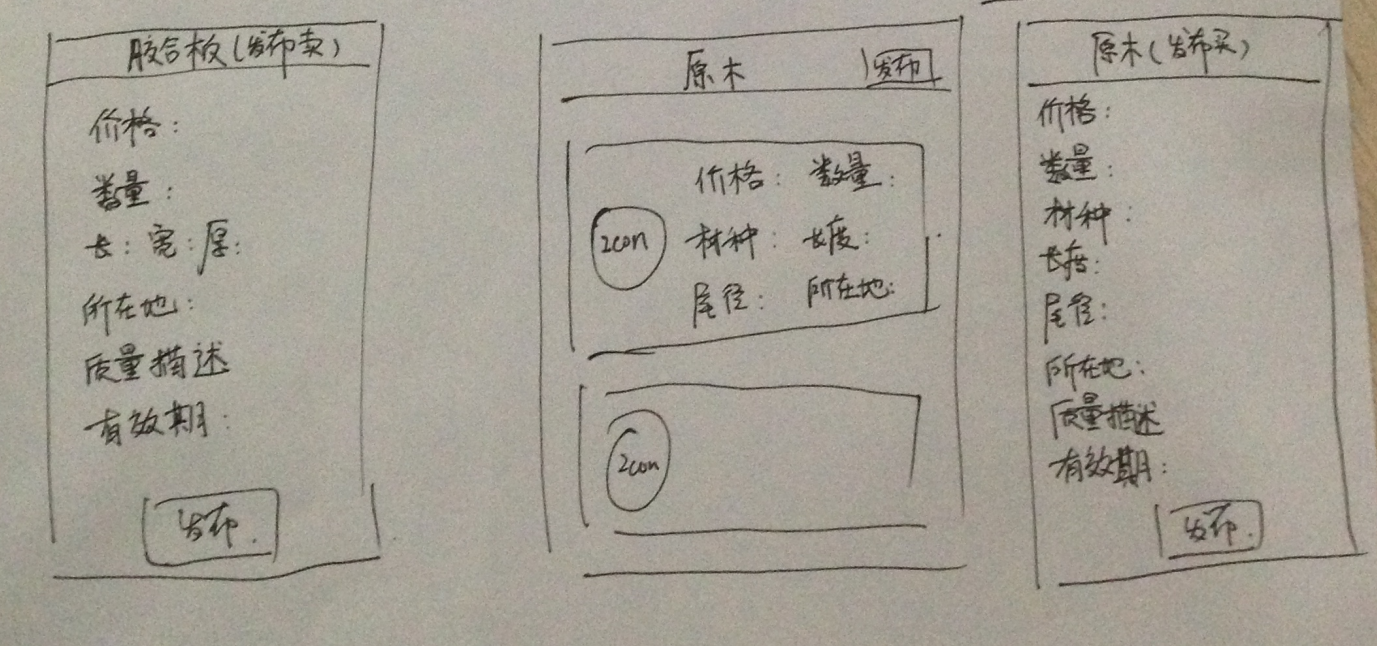 胶合板(发布卖)
价格:
数量:
长: 宽: 厚:
所在地:
质量描述
有效期:
发布.
原木
发布
价格: 数量:
icon
材种: 长度:
尾径: 所在地:
icon
原木(发布买)
价格:
数量:
材种:
长度:
尾径:
所在地:
质量描述
有效期:
发布.